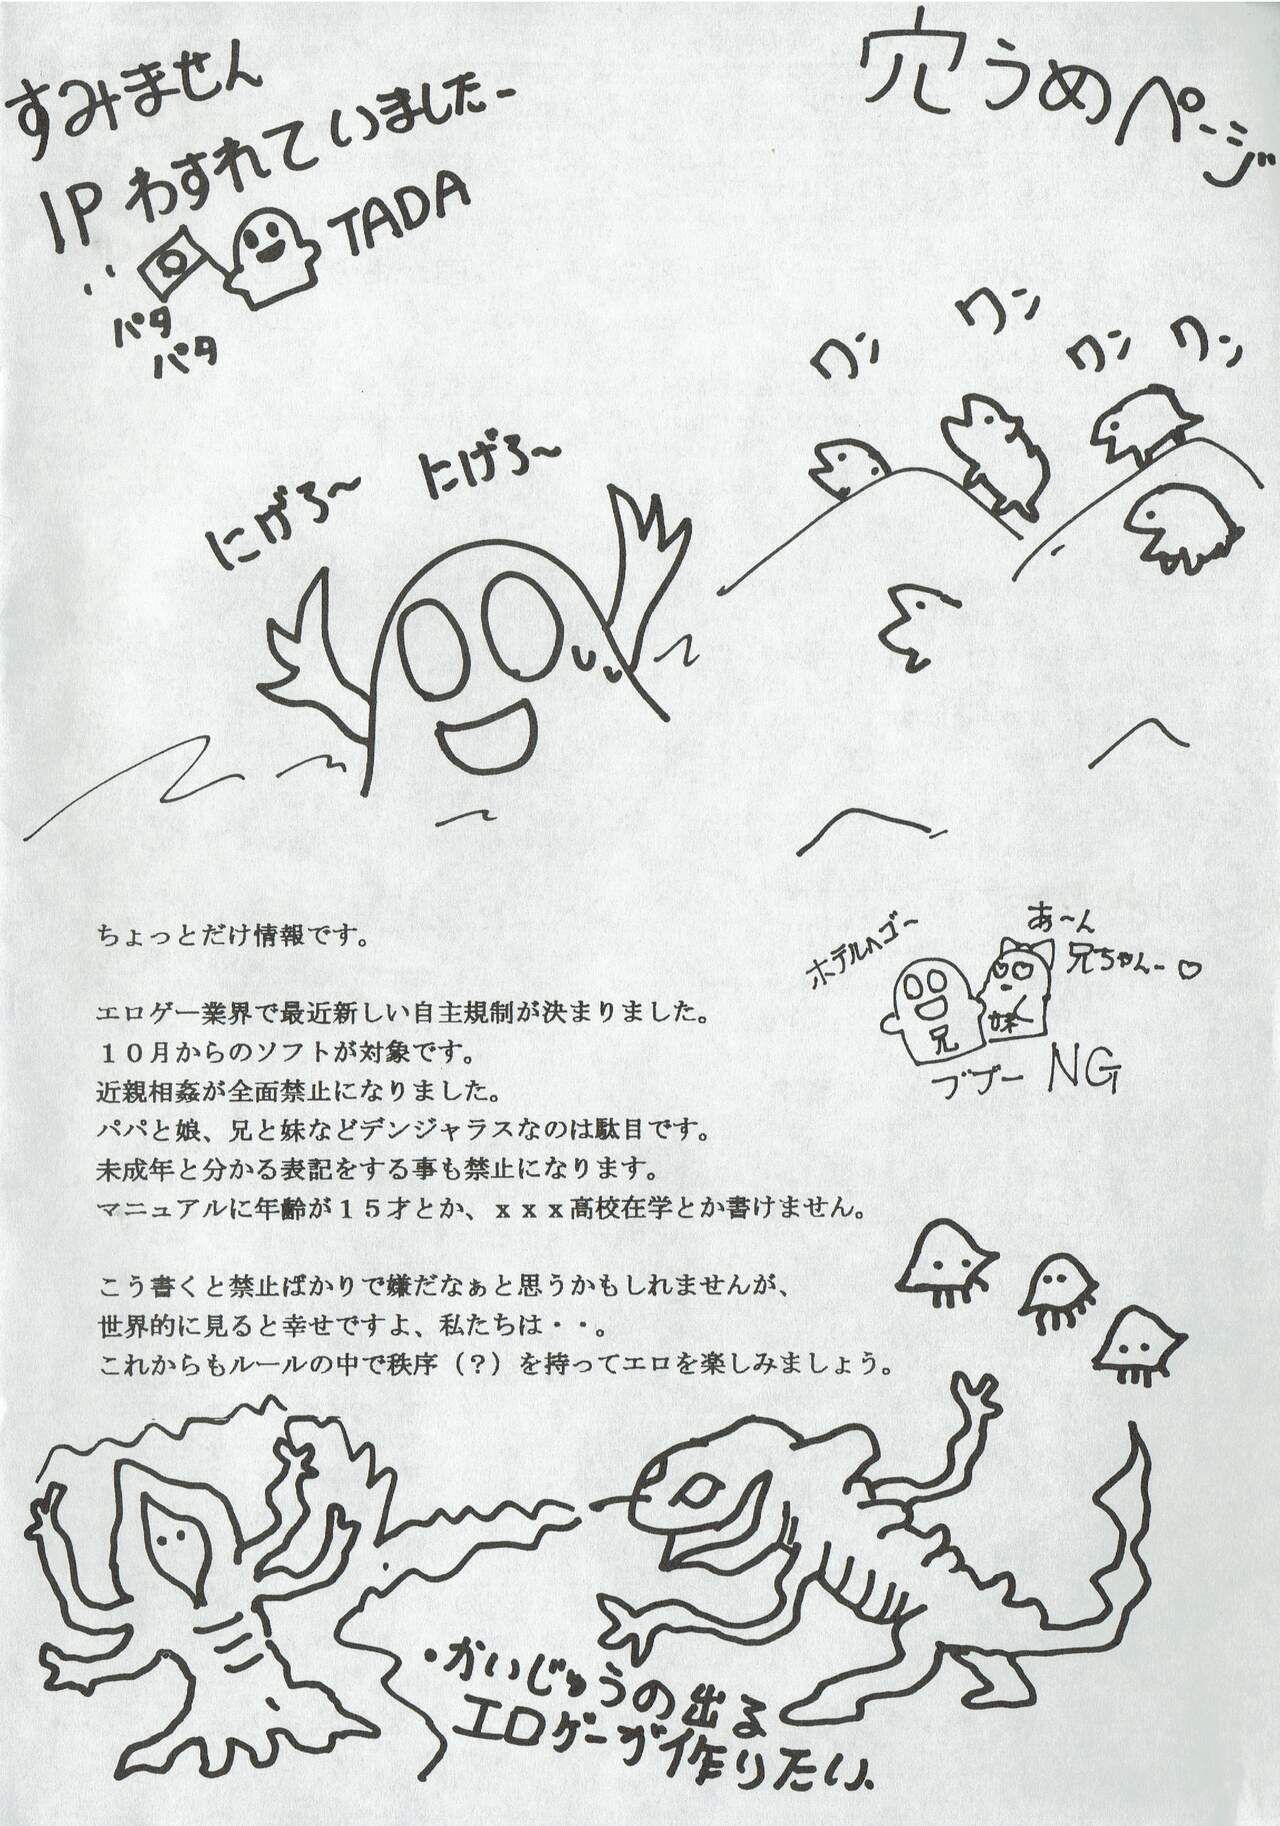 穴うめページ
すみません
IPわすれていましたー
TADA
パタ
パタ
ワン
ワン
ワン
ワン
にげろ〜
にげろ〜
ちょっとだけ情報です。
エロゲー業界で最近新しい自主規制が決まりました。
１０月からのソフトが対象です。
近親相姦が全面禁止になりました。
パパと娘、兄と妹などデンジャラスなのは駄目です。
未成年と分かる表記をする事も禁止になります。
マニュアルに年齢が１５才とか、ｘｘｘ高校在学とか書けません。
ホテルへゴー
あ〜ん
兄ちゃんー♡
兄
妹
ブブー NG
こう書くと禁止ばかりで嫌だなぁと思うかもしれませんが、
世界的に見ると幸せですよ、私たちは・・。
これからもルールの中で秩序（？）を持ってエロを楽しみましょう。
・かいじゅうの出る
エロゲーが作りたい、